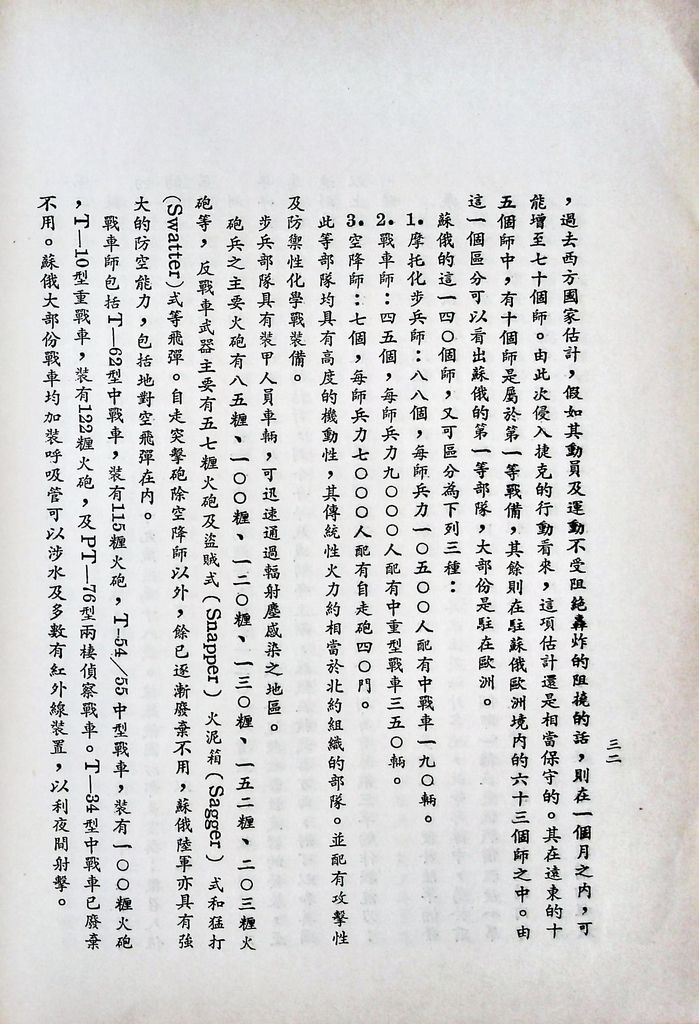 三二
，過去西方國家估計，假如其動員及運動不受阻絶轟炸的阻撓的話，則在一個月之内，可
能增至七十個師。由此次侵入捷克的行動看來，這項估計還是相當保守的。其在遠東的十
五個師中，有十個師是屬於第一等戰備，其餘則在駐蘇俄歐洲境内的六十三個師之中。由
這一個區分可以看出蘇俄的第一等部隊，大部份是駐在歐洲。
蘇俄的這一四〇個師，又可區分為下列三種：
1.摩托化步兵師：八八個，每師兵力一〇五〇〇人配有中戰車一九〇輛。
2.戰車師：四五個，每師兵力九〇〇〇人配有中重型戰車三五〇輛。
3.空降師：七個，每師兵力七〇〇〇人配有自走砲四〇門。
此等部隊均具有高度的機動性，其傳統性火力約相當於北約組織的部隊。並配有攻擊性
及防禦性化學戰裝備。
步兵部隊具有裝甲人員車輛，可迅速通過輻射塵感染之地區。
砲兵之主要火砲有八五糎、一〇〇糎、一二〇糎、一三〇糎、一五二糎、二〇三糎火
砲等，反戰車武器主要有五七糎火砲及盜賊式（Snapper）火泥箱（Sagger）式和猛打
(Swatter)式等飛彈。自走突擊砲除空降師以外，餘已逐漸廢棄不用，蘇俄陸軍亦具有強
大的防空能力，包括地對空飛彈在内。
戰車師包括T—62型中戰車，裝有115糎火砲，T-54/55中型戰車，裝有一〇〇糎火砲
，T—10型重戰車，裝有122糎火砲，及PT—76型兩棲偵察戰車。T—34型中戰車已廢棄
不用。蘇俄大部份戰車均加裝呼吸管可以涉水及多數有紅外線裝置，以利夜間射擊。